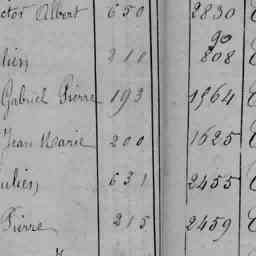 ctor Albert 650 2830
90
lien 210 808
Gabriel Pierre 193 1964
Jean Marie 200 1625
ulien 631 2455
Pierre 215 2459